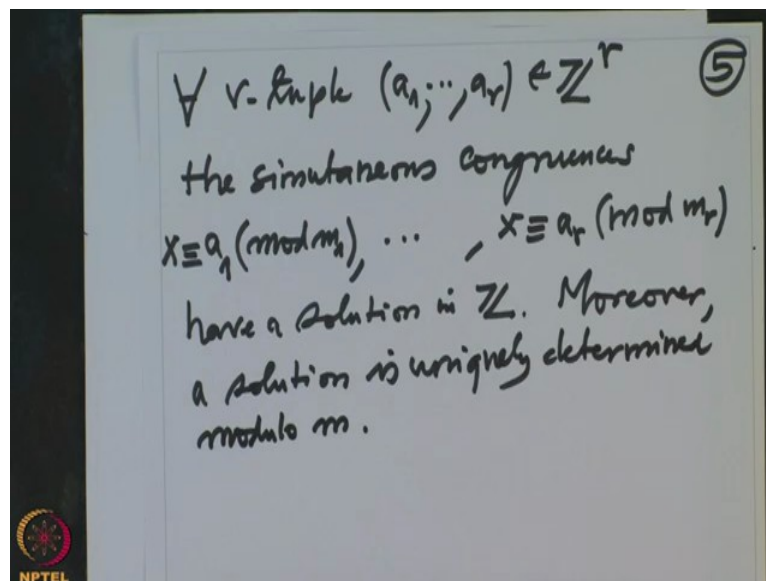 ∀ r-tuple (a₁,⋯,aᵣ) ∈ ℤʳ ⑤
the simutaneous congruences
x≡a₁(mod m₁), ⋯ , x≡aᵣ(mod mᵣ)
have a solution in ℤ. Moreover,
a solution is uniquely determined
modulo m.
NPTEL